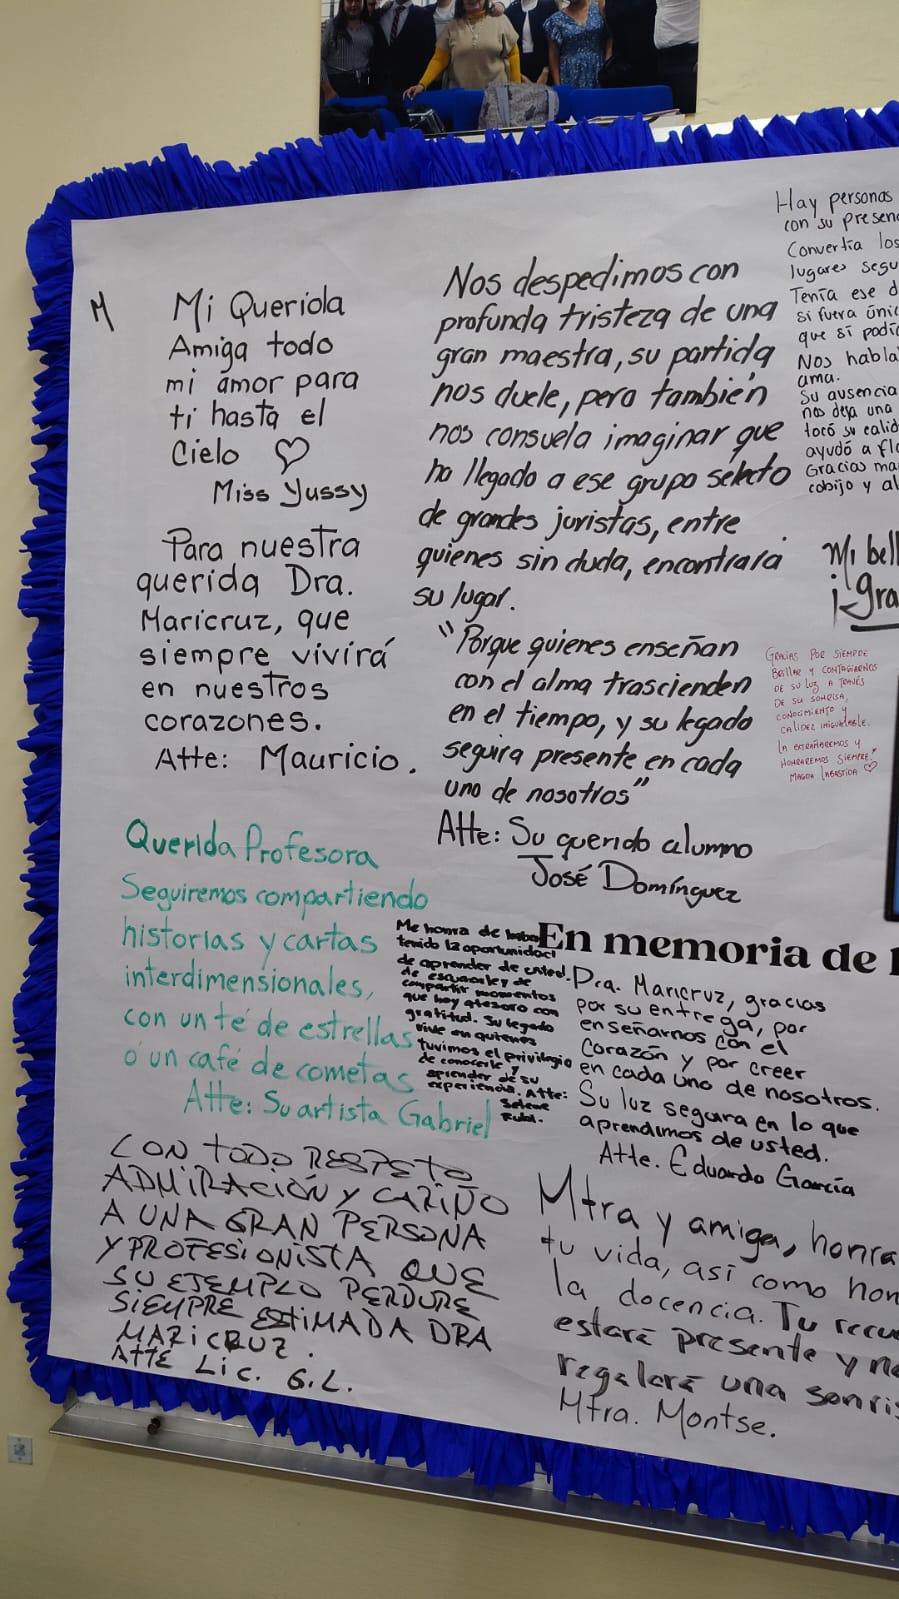 M
Mi Querida
Amiga todo
mi amor para
ti hasta el
Cielo ♡
Miss Yussy
Para nuestra
querida Dra.
Maricruz, que
siempre vivirá
en nuestros
corazones.
Atte: Mauricio.
Querida Profesora
Seguiremos compartiendo
historias y cartas
interdimensionales,
con un té de estrellas
o un café de cometas
Atte: Su artista Gabriel
CON TODO RESPETO
ADMIRACIÓN Y CARIÑO
A UNA GRAN PERSONA
Y PROFESIONISTA QUE
SU EJEMPLO PERDURE
SIEMPRE ESTIMADA DRA
MARICRUZ.
ATTE LIC. G.L.
Nos despedimos con
profunda tristeza de una
gran maestra, su partida
nos duele, pero también
nos consuela imaginar que
ha llegado a ese grupo selecto
de grandes juristas, entre
quienes sin duda, encontrará
su lugar.
"Porque quienes enseñan
con el alma trascienden
en el tiempo, y su legado
seguira presente en cada
uno de nosotros"
Atte: Su querido alumno
José Domínguez
Me honra de
tenido la oportunidad
de aprender de usted.
de escucharle y de
compartir momentos
que hoy atesoro con
gratitud. Su legado
vive en quienes
tuvimos el privilegio
de conocerle y
aprender de su
experiencia. Atte:
Selene
En memoria de
Dra. Maricruz, gracias
por su entrega, por
enseñarnos con el
corazón y por creer
en cada uno de nosotros.
Su luz seguira en lo que
aprendimos de usted.
Atte. Eduardo García
Mtra y amiga, honra
tu vida, así como hon
la docencia. Tu recue
estará presente y n
regalará una sonris
Mtra. Montse.
Hay personas
con su presen
Convertía los
lugares segu
Tenía ese d
si fuera únic
que sí podí
Nos habla
ama.
Su ausencia
nos deja una
tocó su calid
ayudó a flo
Gracias ma
cobijo y al
Mi bell
¡Gra
GRACIAS POR SIEMPRE
BRILLAR Y CONTAGIARNOS
DE SU LUZ A TRAVÉS
DE SU SONRISA,
CONOCIMIENTO Y
CALIDEZ INIGUALABLE.
LA EXTRAÑAREMOS Y
HONRAREMOS SIEMPRE,
MAGDA ♡